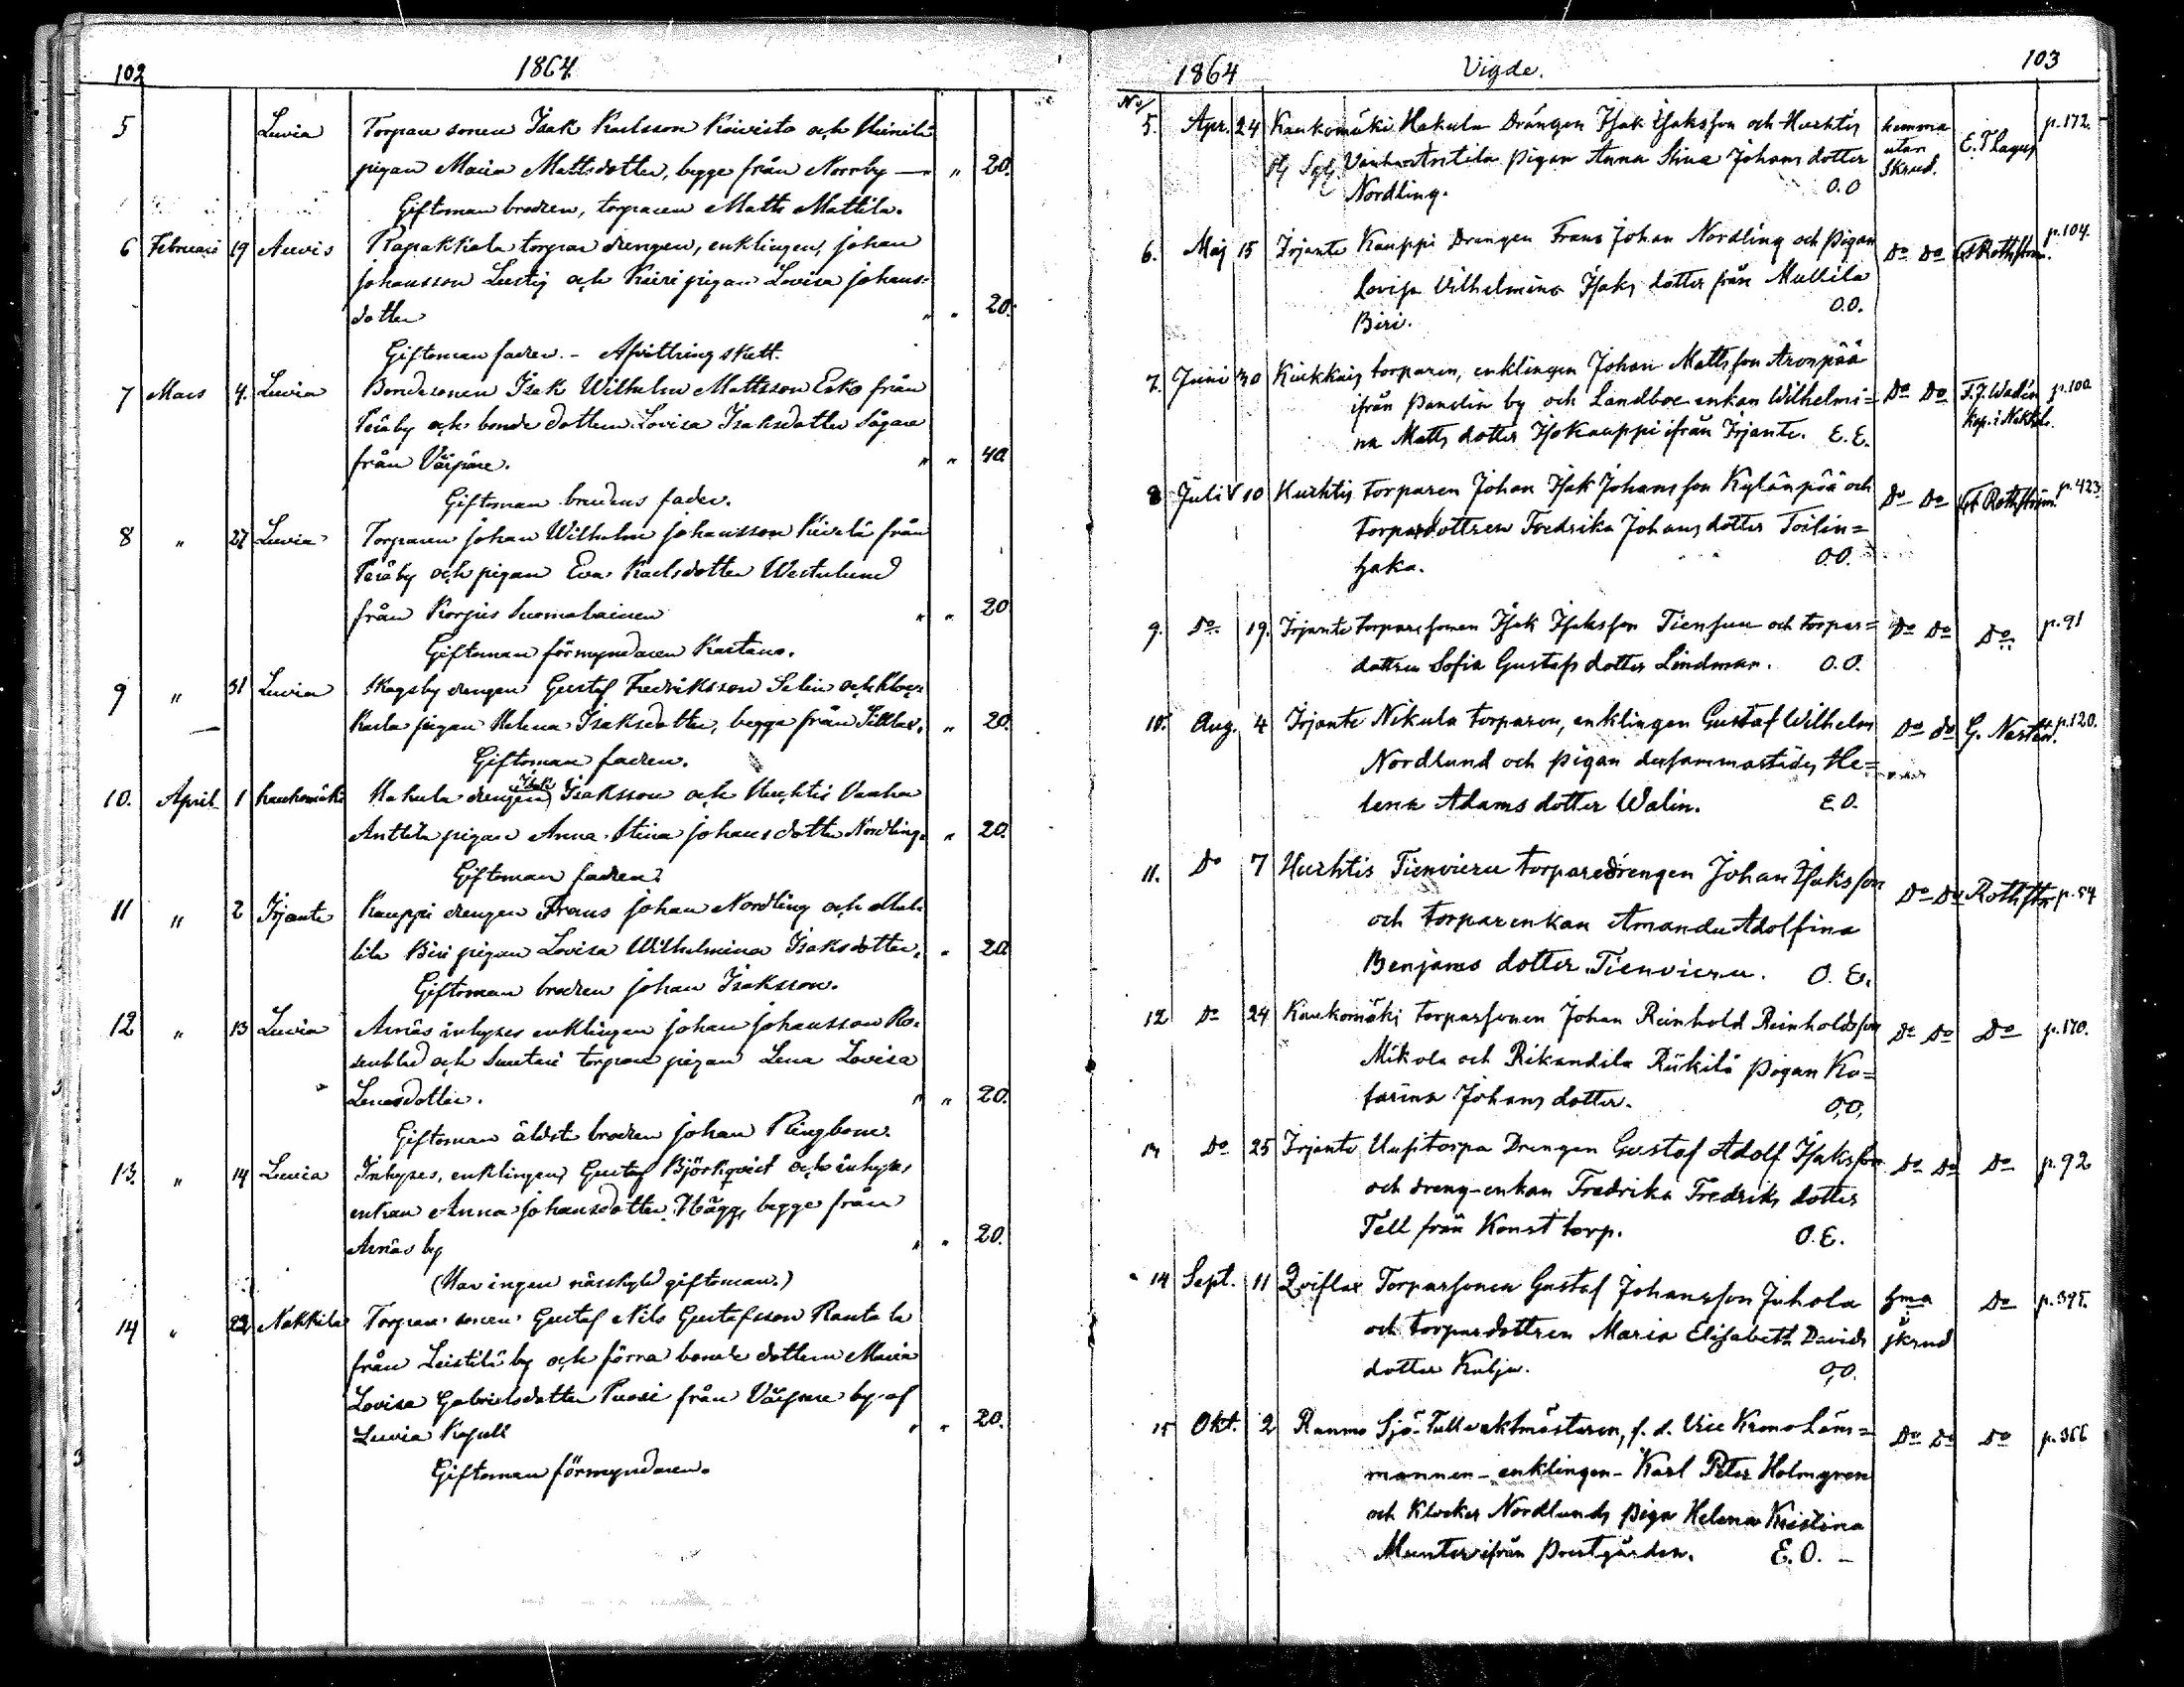 102
1864.
5 Luvia Torpare sonen Isak Karlsson Koivisto och Heinilä
pigan Maria Mattsdotter, begge från Norrby — " 20.
Giftoman brodren, torparen Matts Mattila.
6 Februari 19 Auvis Rapakkala torpar drengen, enklingen, Johan
Johansson Lustig och Kairi pigan Lovisa Johans-
dotter " " 20.
Giftoman fadren. - Afvittring skett.
7 Mars 4. Luvia Bondesonen Isak Wilhelm Mattsson Esko från
Peräby och bonde dottern Lovisa Isaksdotter Sågare
från Väipäre. " " 40
Giftoman brudens fader.
8 " 27 Luvia Torparen Johan Wilhelm Johansson Kivelä från
Peräby och pigan Eva Karlsdotter Westerlund
från Korpis Suomalainen " " 20
Giftoman förmyndaren Kastano.
9 " 31 Luvia Skogsby drengen Gustaf Fredriksson Selin och
Karla pigan Helena Isaksdotter, begge från " 20.
Giftoman fadren.
10. April 1 Kaukomäki Hakula drengen Isak Isaksson och Hurhtis Vanha
Anttila pigan Anna Stina Johansdotter Nordling. " 20.
Giftoman fadren.
11 " 2 Irjante Kauppi drengen Frans Johan Nordling och Mul-
lila Biri pigan Lovisa Wilhelmina Isaksdotter. " 20.
Giftoman brodren Johan Isaksson.
12 " 13 Luvia Arnäs inhyses enklingen Johan Johansson Ro-
senblad och torpare pigan Lena Lovisa
Lenasdotter. " " 20.
Giftoman äldste brodren Johan Ringbom.
13. " 14 Luvia Inhyses, enklingen Gustaf Björkqvist och inhyses
enkan Anna Johansdotter Hägg, begge från
Arnäs by " " 20.
(Har ingen närskyld giftoman.)
14 " 22 Nakkila Torpare sonen Gustaf Nils Gustafsson Rantala
från Leistilä by och förra bonde dottern Maria
Lovisa Gabrielsdotter Purси från Väipäre by af
Luvia Kapell " " 20.
Giftoman förmyndaren.
1864 Vigde. 103
No/
5. Apr. 24 Kaukomäki Hakula Drängen Isak Isaksson och Hurhtis hemma utan skrud. E. T Lagus p. 172.
Vanha Anttila Pigan Anna Stina Johans dotter
Nordling. O.O
6. Maj 15 Irjante Kauppi Drengen Frans Johan Nordling och Pigan Do Do Rothström. p. 104.
Lovisa Vilhelmina Isaks dotter från Mullila
Biri. O.O.
7. Juni 30 Kiukkais torparen, enklingen Johan Mattsson Aronpää
ifrån Panelia by och Landboe enkan Wilhelmi- Do Do F. J. Wadén Kap. i Nakkila. p. 100
na Matts dotter Isokauppi ifrån Irjante. E.E.
8 Juli 10 Hurhtis Torparen Johan Isak Johansson Kylänpää och Do Do Rothström. p. 423
torpardottren Fredrika Johans dotter Toilin-
haka. O.O.
9. Do. 19. Irjante torparesonen Isak Isaksson Tiensuu och torpar- Do Do Do. p. 91
dottren Sofia Gustafs dotter Lindman. O.O.
10. Aug. 4 Irjante Nikula torparen, enklingen Gustaf Wilhelm Do do G. Nestén. p. 120.
Nordlund och pigan dersammastädes He-
lena Adams dotter Walin. E.O.
11. Do 7 Hurhtis Tienvieru torparedrengen Johan Isaksson Do Do Rothstr. p. 54
och torparenkan Amanda Adolfina
Benjams dotter Tienvieru. O.E.
12 Do 24 Kaukomäki torparsonen Johan Reinhold Reinholdsson Do Do Do p. 170.
Mikola och Rikandila Riikilä Pigan Ka-
tarina Johans dotter. O,O,
13 Do 25 Irjante Uusitorpa Drengen Gustaf Adolf Isaksson Do Do Do p. 92
och dreng-enkan Fredrika Fredriks dotter
Tell från Konst torp. O.E.
14 Sept. 11 Qviflax Torparsonen Gustaf Johansson Juhola hma i skrud Do p. 395.
och torpardottren Maria Elisabeth Davids
dotter Kulju. O,O.
15 Okt. 2 Raumo Sjö-Tullvaktmästaren, f. d. Vice Krono Läns- Do Do Do p. 366
mannen - enklingen - Karl Peter Holmgren
och Klockar Nordlunds Piga Helena Kristina
Munter ifrån Prestgården. E.O. -